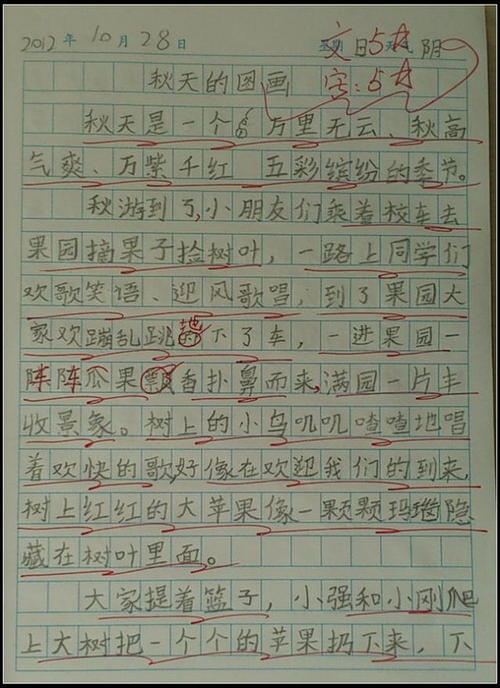 2012年10月28日 文:5★ 阴
秋天的图画 字:5★
秋天是一个万里无云、秋高
气爽、万紫千红 五彩缤纷的季节。
秋游到了,小朋友们乘着校车去
果园摘果子捡树叶,一路上同学们
欢歌笑语、迎风歌唱,到了果园大
家欢蹦乱跳地下了车,一进果园一
阵阵瓜果飘香扑鼻而来,满园一片丰
收景象。树上的小鸟叽叽喳喳地唱
着欢快的歌,好像在欢迎我们的到来,
树上红红的大苹果像一颗颗玛瑙隐
藏在树叶里面。
大家提着篮子,小强和小刚爬
上大树把一个个的苹果扔下来,下